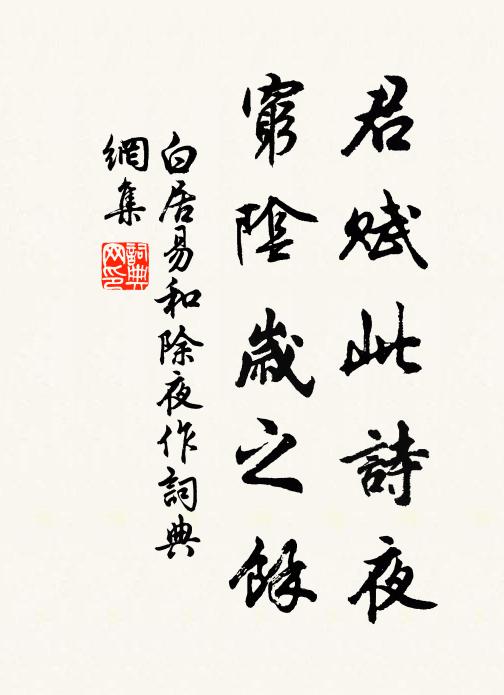 君賦此詩夜
窮陰歲之餘
白居易和除夜作詞典
網集
詞典
网印